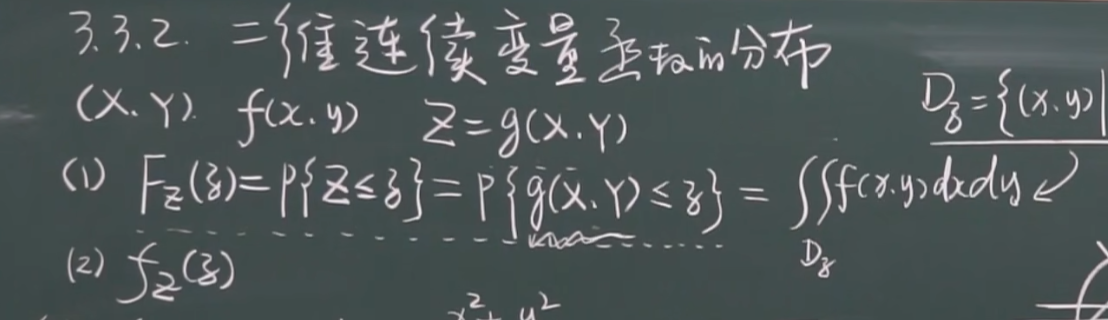 3.3.2. 二维连续变量函数的分布
(X.Y). f(x.y) Z=g(X.Y)
D_z={(x.y)|
(1) F_Z(z)=P{Z≤z}=P{g(X.Y)≤z}=∬f(x.y)dxdy
D_z
(2) f_Z(z)
x²+y²